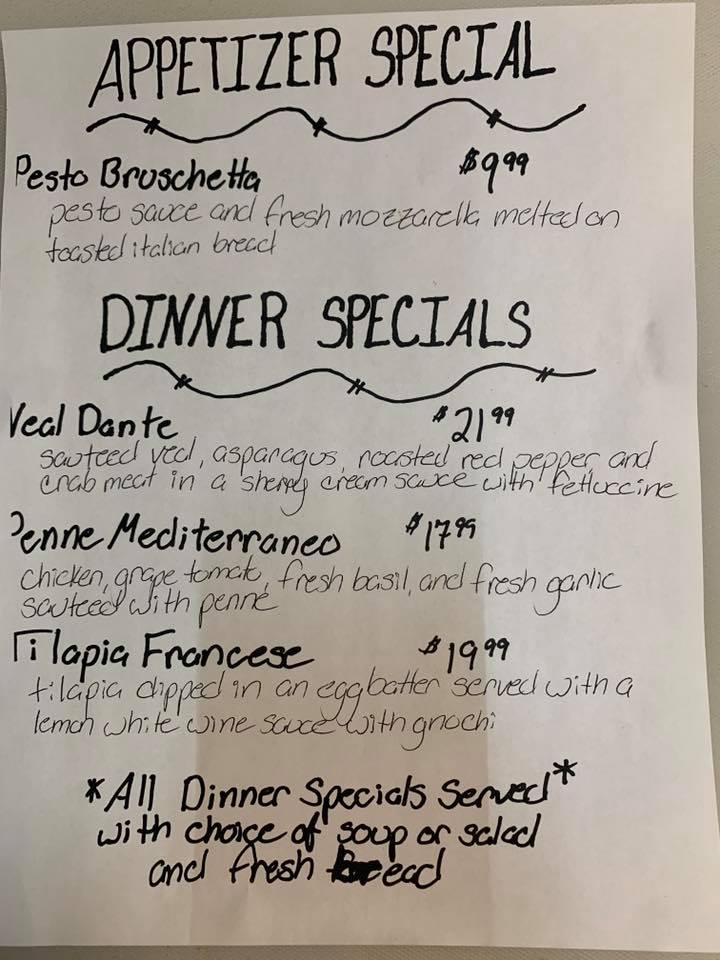 APPETIZER SPECIAL
Pesto Bruschetta $9.99
pesto sauce and fresh mozzarella melted on
toasted italian bread
DINNER SPECIALS
Veal Dante $21.99
sauteed veal, asparagus, roasted red pepper and
crab meat in a sherry cream sauce with fettuccine
Penne Mediterraneo $17.99
chicken, grape tomato, fresh basil, and fresh garlic
sauteed with penne
Tilapia Francese $19.99
tilapia dipped in an egg batter served with a
lemon white wine sauce with gnochi
*All Dinner Specials Served*
with choice of soup or salad
and fresh bread